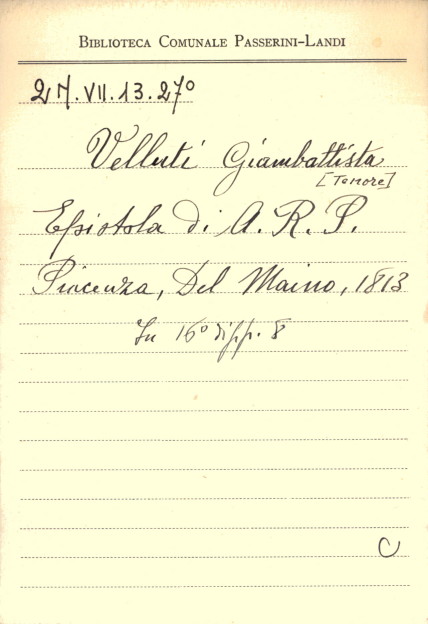 BIBLIOTECA COMUNALE PASSERINI-LANDI
2M.VII.13.27º
Velluti Giambattista
[Tenore]
Epistola di A. R. P.
Piacenza, Del Maino, 1813
In 16º di pp. 8
C